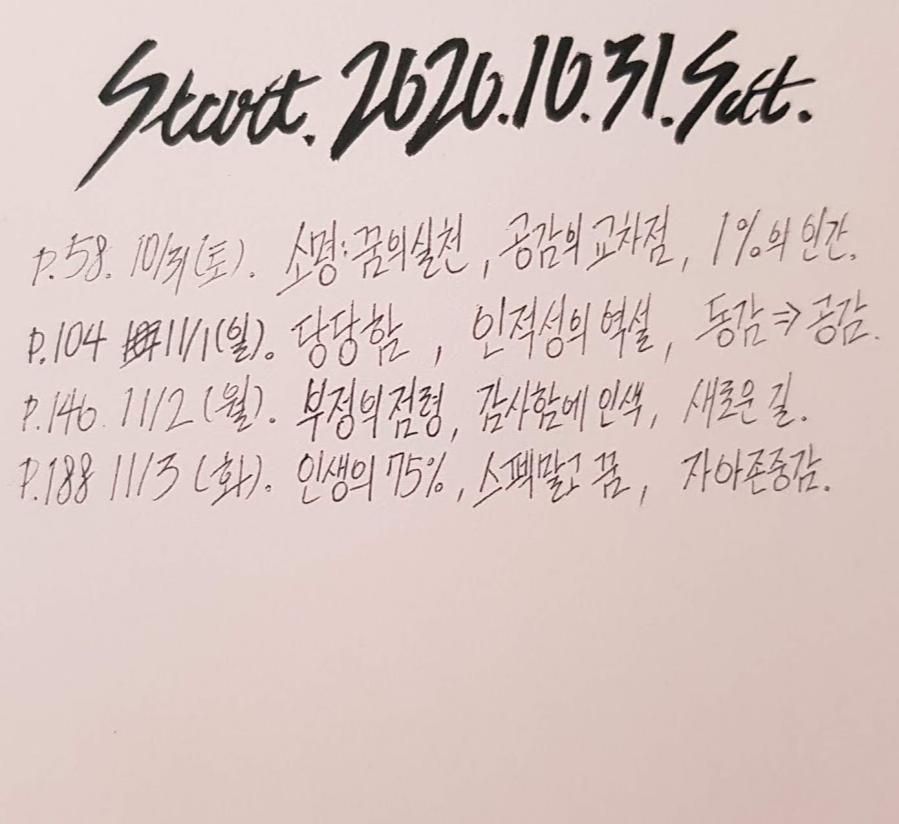 Start. 2020.10.31. Sat.
P.58. 10/31(토). 소명:꿈의실천, 공감의 교차점, 1%의 인간.
P.104 11/1(일). 당당함, 인적성의 역설, 동감⇒공감.
P.146. 11/2(월). 부정의점령, 감사함에 인색, 새로운 길.
P.188 11/3(화). 인생의 75%, 스펙말고 꿈, 자아존중감.